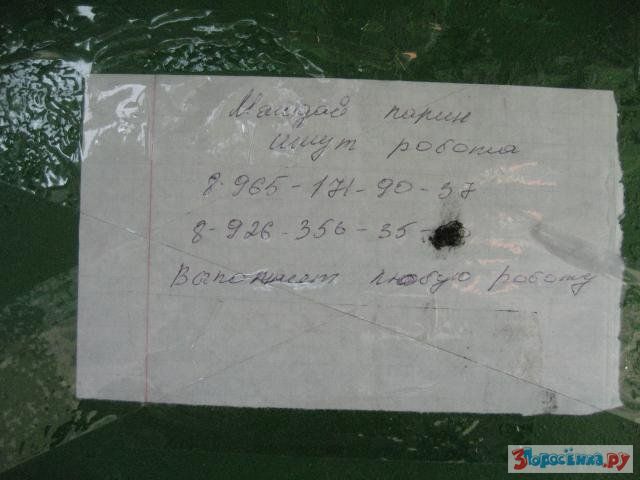 Маладой парин
ишут робота
8-965-171-90-37
8-926-356-35-
Вапонънет любую работу
3Поросёнка.ру